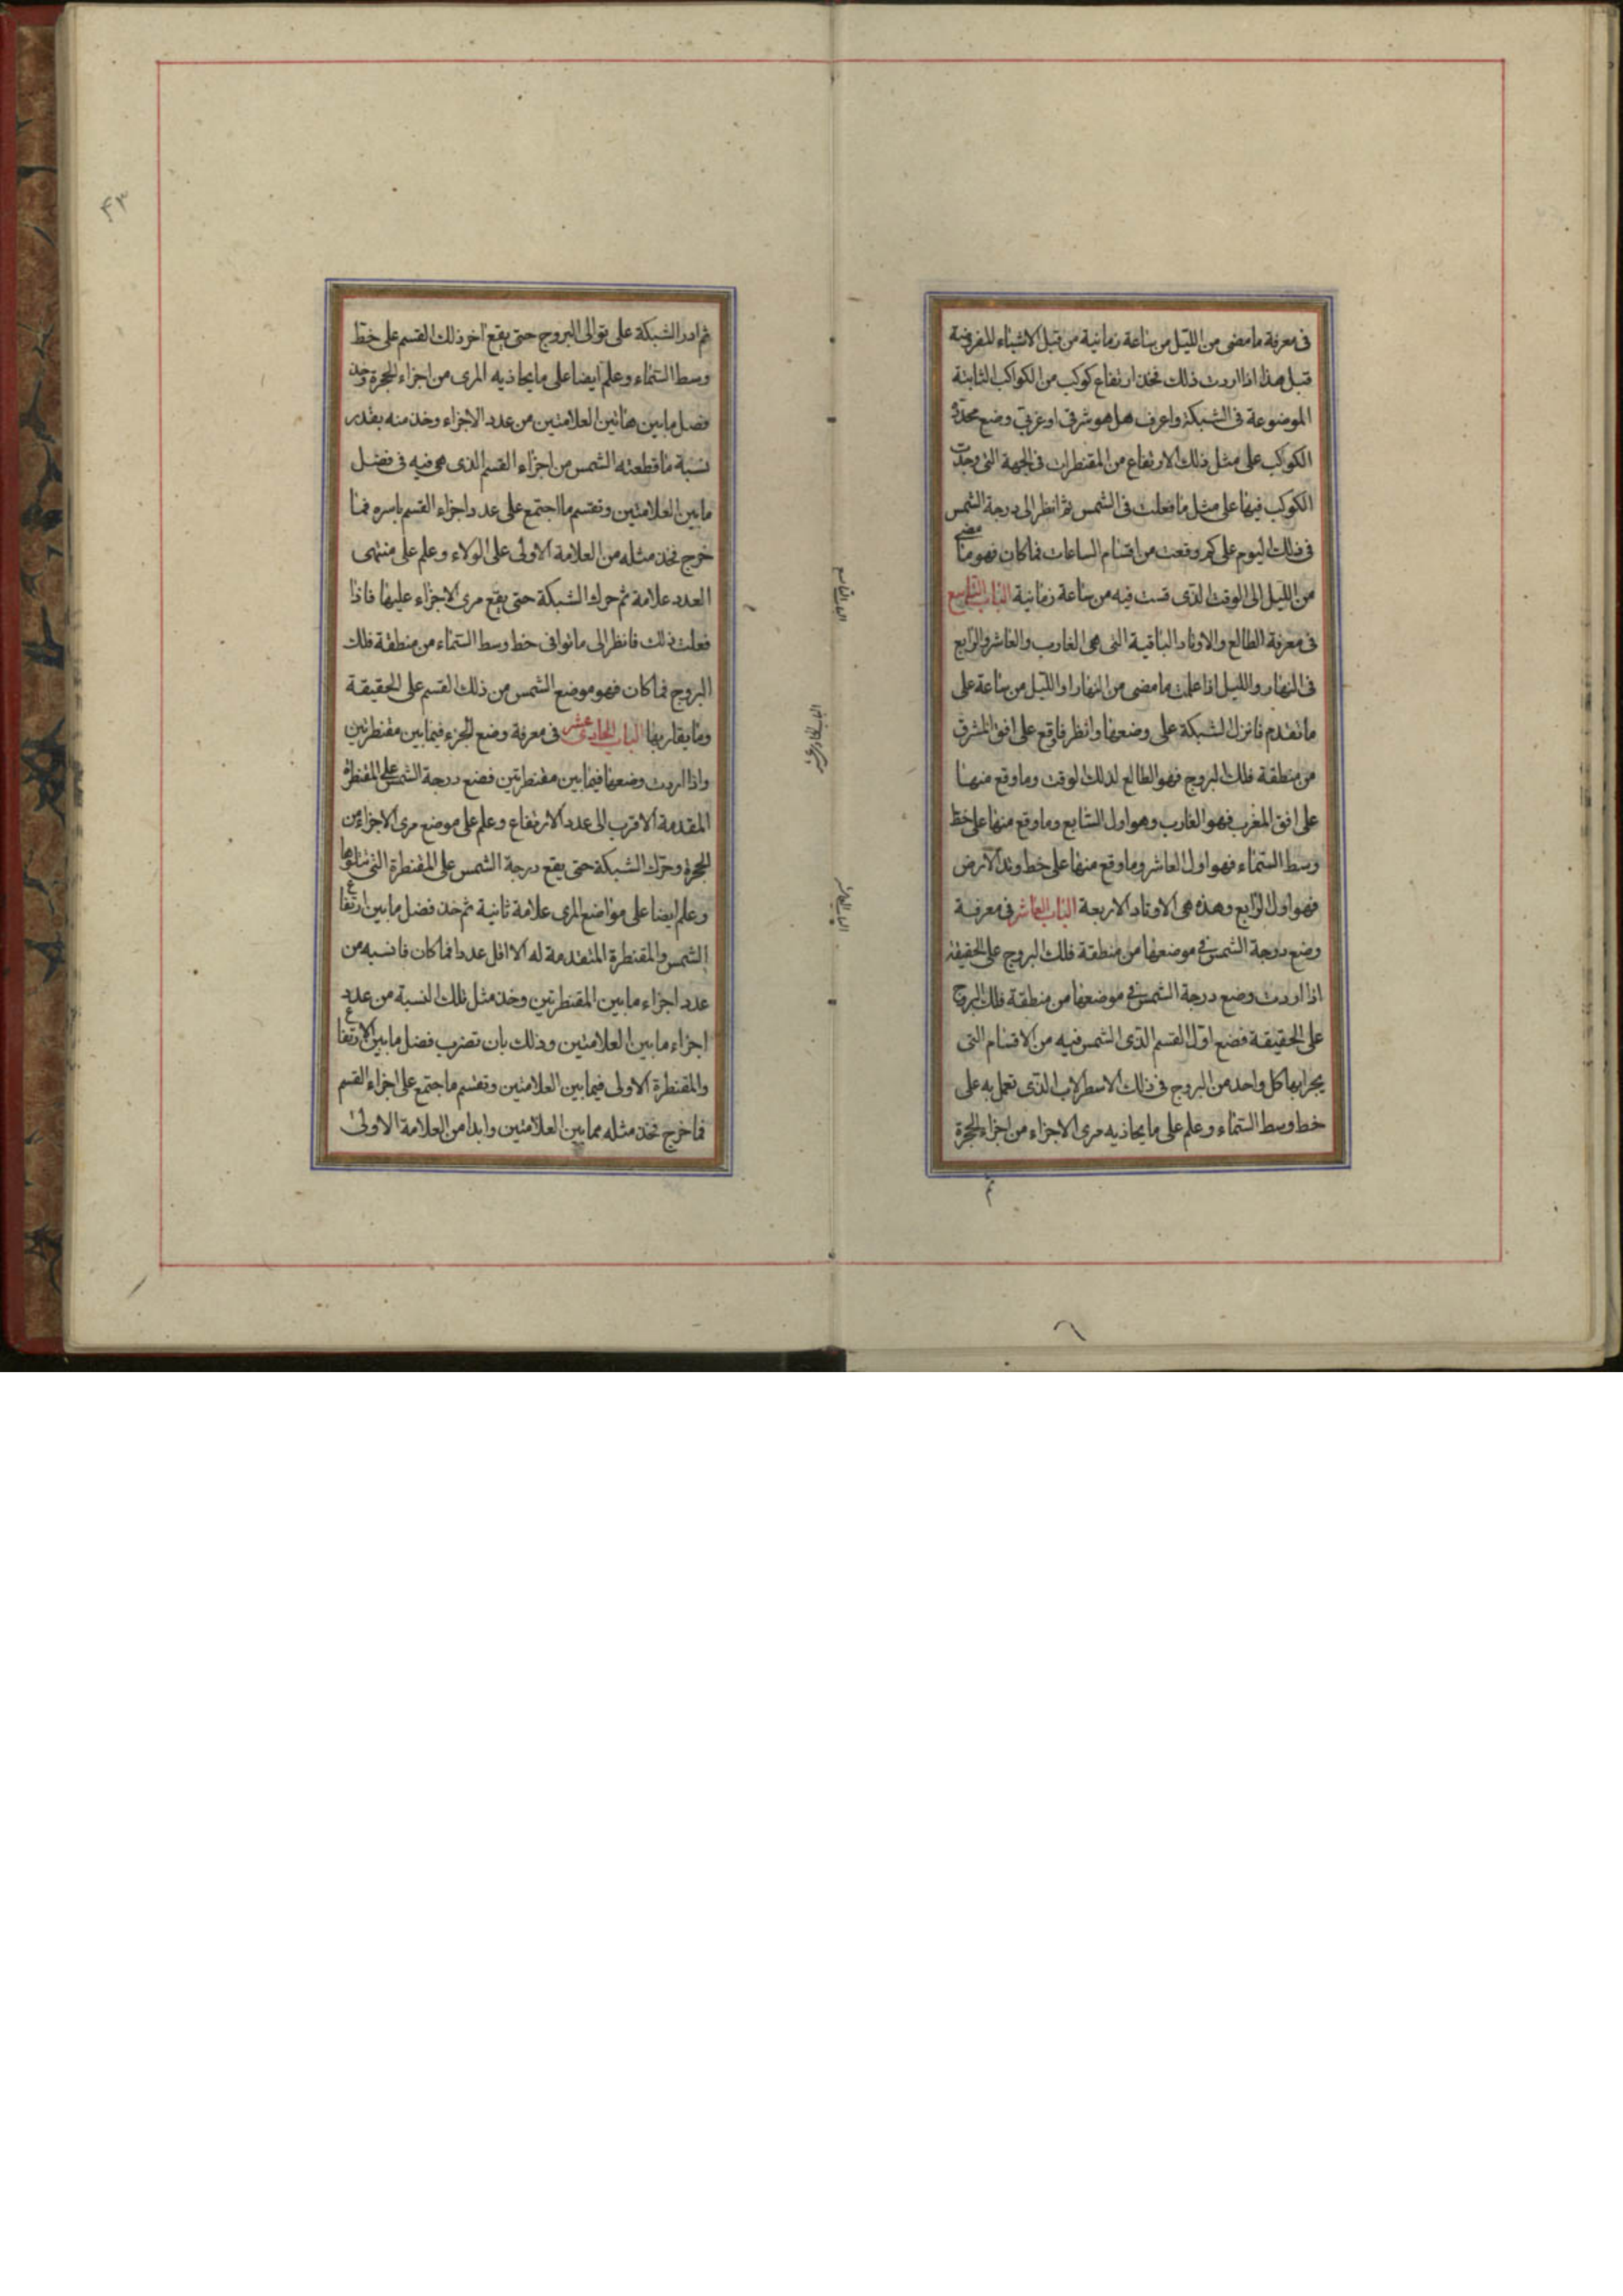 فى معرفة ما مضى من الليل من ساعة زمانية من قبل الاشياء المفروضة
قبل هذا اذا اردت ذلك فخذ ارتفاع كوكب من الكواكب الثابتة
الموضوعة فى الشبكة واعرف هل هو شرقى او غربى وضع محدد
الكوكب على مثل ذلك الارتفاع من المقنطرات فى الجهة التى وجدت
الكوكب فيها على مثل ما فعلت فى الشمس ثم انظر الى درجة الشمس
فى ذلك اليوم على كم وقعت من اقسام الساعات فما كان فهو ما مضى
من الليل الى الوقت الذى قست فيه من ساعة زمانية الباب التاسع
فى معرفة الطالع والاوتاد الباقية التى هى الغارب والعاشر والرابع
فى النهار والليل اذا علمت ما مضى من النهار او الليل من ساعة على
ما تقدم فاترك الشبكة على وضعها وانظر ما وقع على افق المشرق
من منطقة فلك البروج فهو الطالع لذلك الوقت وما وقع منها
على افق المغرب فهو الغارب وهو اول السابع وما وقع منها على خط
وسط السماء فهو اول العاشر وما وقع منها على خط وتد الارض
فهو اول الرابع وهذه هى الاوتاد الاربعة الباب العاشر فى معرفة
وضع درجة الشمس فى موضعها من منطقة فلك البروج على الحقيقة
اذا اردت وضع درجة الشمس فى موضعها من منطقة فلك البروج
على الحقيقة فضع اول القسم الذى الشمس فيه من الاقسام التى
يجرا بها كل واحد من البروج فى ذلك الاسطرلاب الذى تعمل به على
خط وسط السماء وعلم على ما يحاذيه مرى الاجزاء من اجزاء الحجرة
ثم
الباب التاسع
الباب الحادى عشر
الباب العاشر
۴۳
ثم ادر الشبكة على توالى البروج حتى يقع اخر ذلك القسم على خط
وسط السماء وعلم ايضا على ما يحاذيه المرى من اجزاء الحجرة وخذ
فضل ما بين هاتين العلامتين من عدد الاجزاء وخذ منه بقدر
نسبة ما قطعته الشمس من اجزاء القسم الذى هى فيه فى فضل
ما بين العلامتين وتقسم ما اجتمع على عدد اجزاء القسم باسره فما
خرج فخذ مثله من العلامة الاولى على الولاء وعلم على منتهى
العدد علامة ثم حرك الشبكة حتى يقع مرى الاجزاء عليها فاذا
فعلت ذلك فانظر الى ما توافى خط وسط السماء من منطقة فلك
البروج فما كان فهو موضع الشمس من ذلك القسم على الحقيقة
وما يقاربها الباب الحادى عشر فى معرفة وضع الجزء فيما بين مقنطرتين
واذا اردت وضعها فيما بين مقنطرتين فضع درجة الشمس على المقنطرة
المقدمة الاقرب الى عدد الارتفاع وعلم على موضع مرى الاجزاء من
الحجرة وحرك الشبكة حتى يقع درجة الشمس على المقنطرة التى تتلوها
وعلم ايضا على مواضع المرى علامة ثانية ثم خذ فضل ما بين ارتفاع
الشمس والمقنطرة المتقدمة له الاقل عددا فما كان فانسبه من
عدد اجزاء ما بين المقنطرتين وخذ مثل تلك النسبة من عدد
اجزاء ما بين العلامتين وذلك بان تضرب فضل ما بين الارتفاع
والمقنطرة الاولى فيما بين العلامتين وتقسم ما اجتمع على اجزاء القسم
فما خرج فخذ مثله مما بين العلامتين وابدا من العلامة الاولى